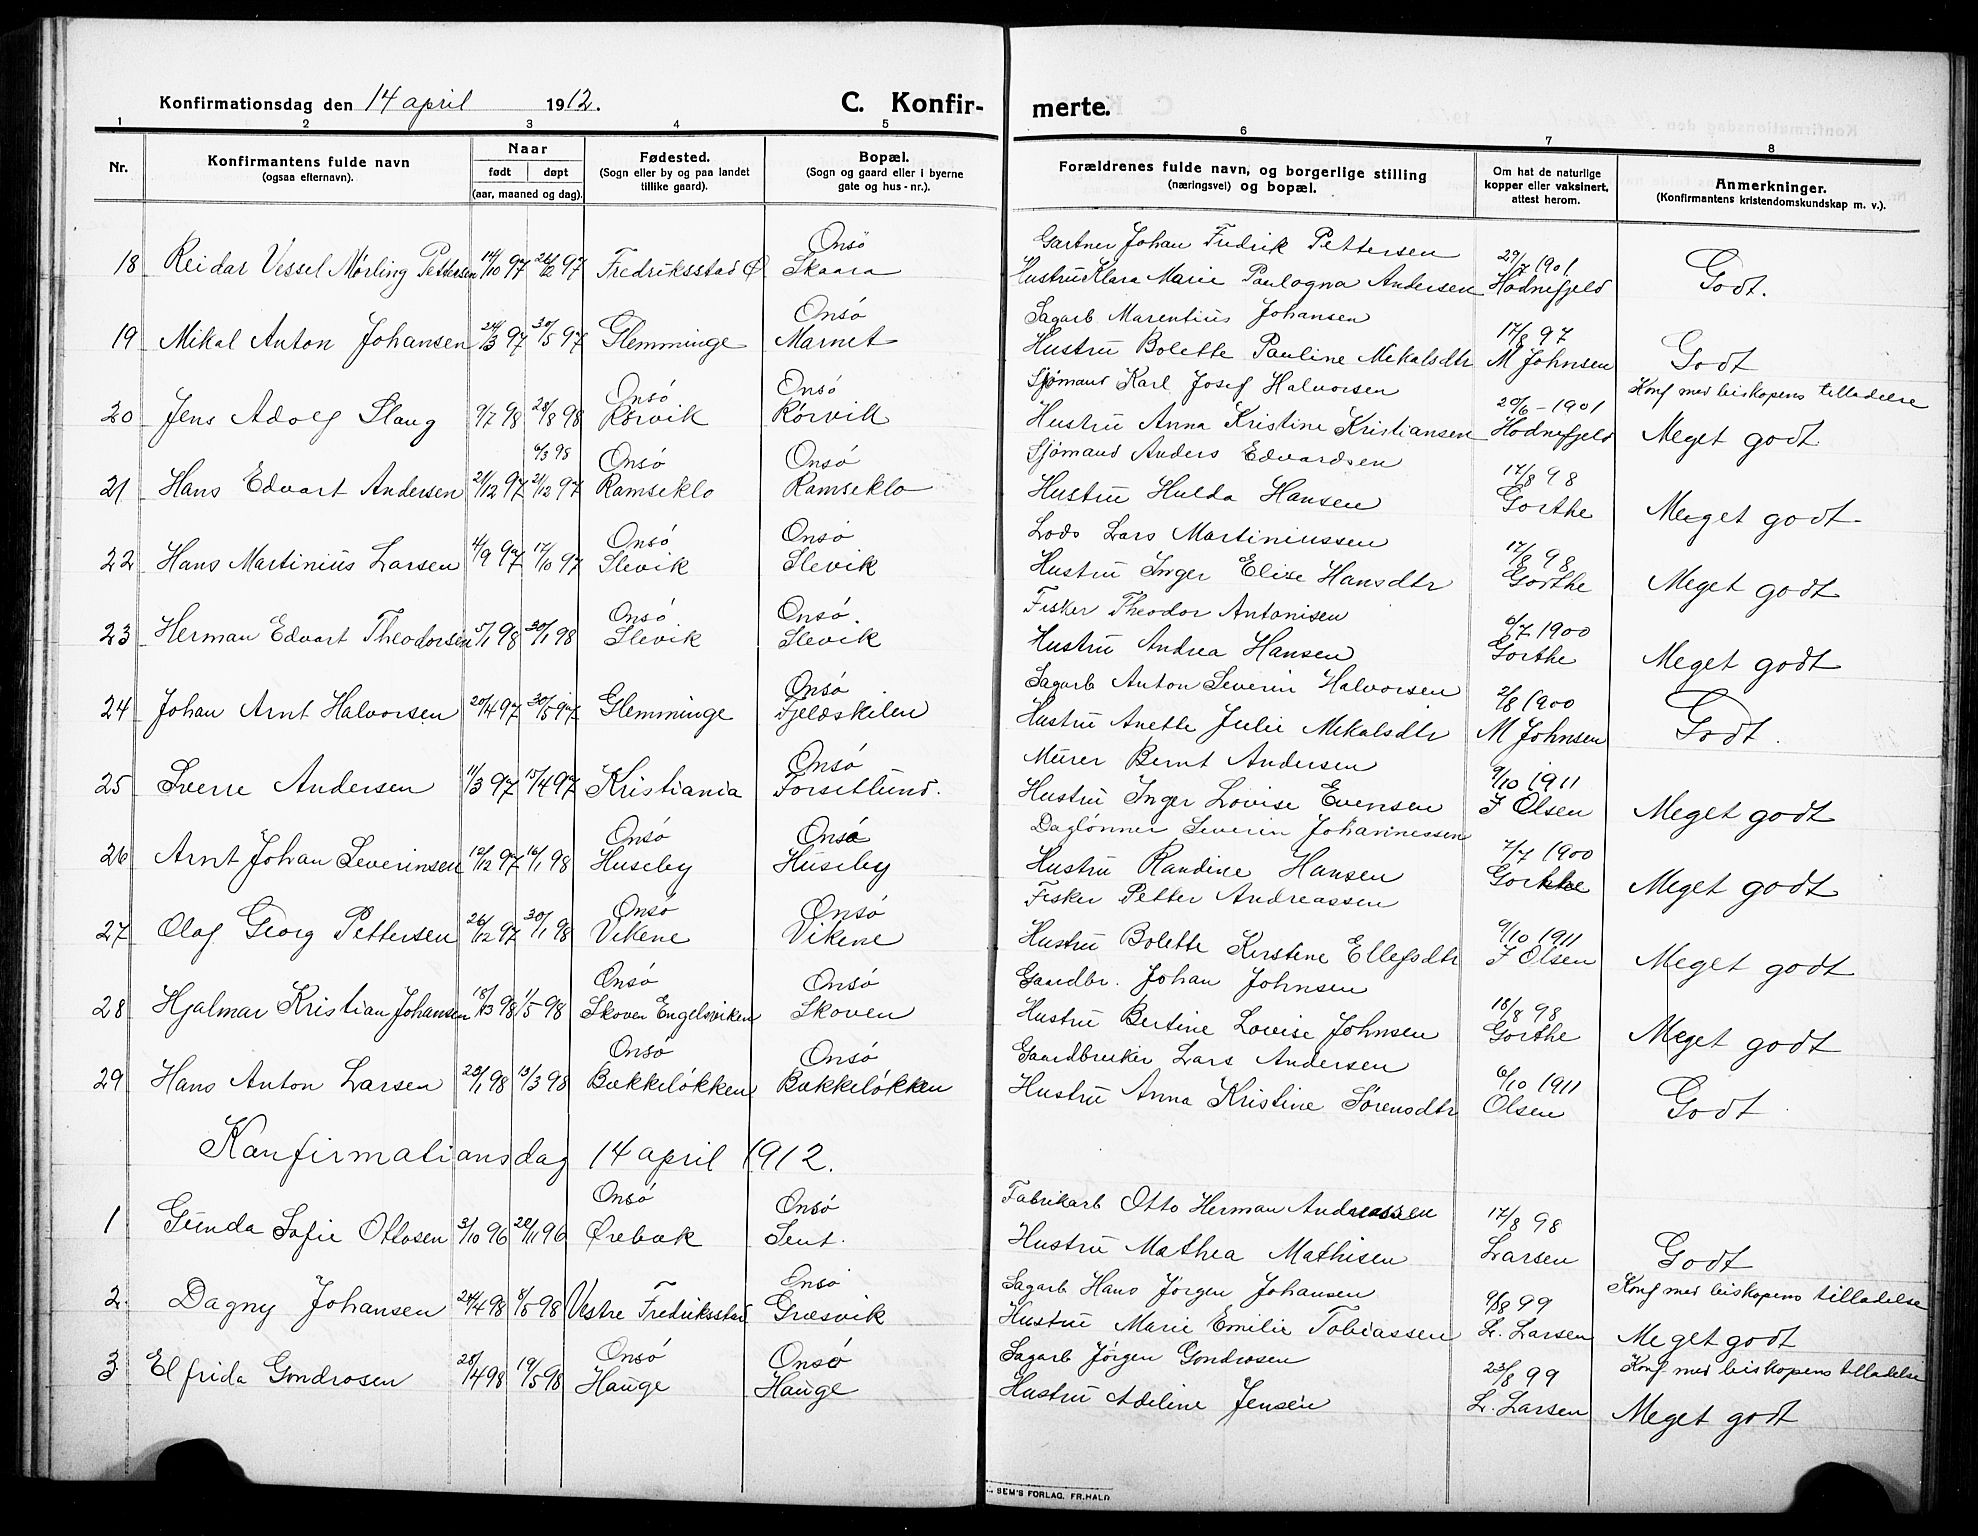 Konfirmationsdag den 14 april 1912.
C. Konfir-
merte.
1 2 3 4 5 6 7 8
Nr.
Konfirmantens fulde navn
(ogsaa efternavn).
Naar
født døpt
(aar, maaned og dag).
Fødested.
(Sogn eller by og paa landet
tillike gaard).
Bopæl.
(Sogn og gaard eller i byerne
gate og hus - nr.).
Forældrenes fulde navn, og borgerlige stilling
(næringsvei) og bopæl.
Om hat de naturlige
kopper eller vaksinert,
attest herom.
Anmerkninger.
(Konfirmantens kristendomskundskap m. v.).
Onsö Gartner Johan Fredrik Pettersen 29/7 1901
18 Reidar Vessel Mørling Pettersen 14/10 97 26/12 97 Fredriksstad Ø Skaara Hustru Klara Marie Paulagna Andersen Hodnefjeld Godt.
Onsö Sagarb. Marentius Johansen 17/8 97
19 Mikal Anton Johansen 24/3 97 30/5 97 Glemminge Marnet Hustru Bolette Pauline Mekalsdtr M Johnsen Godt
Onsö Onsö Sjømand Karl Josef Halvorsen 20/6 - 1901 Konf med biskopens tilladelse
20 Jens Adolf Slang 9/7 98 28/8 98 Rørvik Rørvik Hustru Anna Kristine Kristiansen Hodnefjeld Meget godt.
6/3 98 Onsö Onsö Sjømand Anders Edvardsen 17/8 98
21 Hans Edvart Andersen 21/12 97 21/12 97 Ramseklo Ramseklo Hustru Hulda Hansen Gorthe Meget godt
Onsö Onsö Lods Lars Martiniussen 17/8 98
22 Hans Martinius Larsen 4/9 97 17/10 97 Slevik Slevik Hustru Inger Elise Hansdtr Gorthe Meget godt
Onsö Onsö. Fisker Theodor Antonisen 6/7 1900
23 Herman Edvart Theodorsen 5/1 98 30/1 98 Slevik Slevik Hustru Andrea Hansen Gorthe Meget godt
Onsö Sagarb Anton Severin Halvorsen 2/8 1900
24 Johan Arnt Halvorsen 20/4 97 30/5 97 Glemminge Fjeldskilen Hustru Anette Julie Mekalsdtr M Johnsen Godt.
Onsö Murer Bernt Andersen 9/10 1911
25 Sverre Andersen 11/3 97 15/4 97 Kristiania Forsetlund. Hustru Inger Lovise Evensen J Olsen Meget godt
Onsö Onsö Daglønner Severin Johannessen 7/7 1900
26 Arnt Johan Severinsen 12/12 97 16/1 98 Huseby Huseby Hustru Randine Hansen Gorthe Meget godt
Onsö Onsö Fisker Petter Andreassen 9/10 1911
27 Olaf Georg Pettersen 26/12 97 30/1 98 Vikene Vikene Hustru Bolette Kirstine Ellefsdtr J Olsen Meget godt
Onsö Onsö Gaardbr. Johan Johnsen 18/8 98
28 Hjalmar Kristian Johansen 18/3 98 1/5 98 Skoven Engelsviken Skoven Hustru Bertine Lovise Johnsen Gorthe Meget godt
Onsö Onsö Gaardbruker Lars Andersen 6/10 1911
29 Hans Anton Larsen 23/1 98 13/3 98 Bækkeløkken Bækkeløkken Hustru Anna Kristine Sørensdtr Olsen Godt
Konfirmationsdag 14 april 1912.
Onsö Onsö Fabrikarb Otto Herman Andreassen 17/8 98
1 Gunda Sofie Ottosen 3/10 96 20/11 96 Ørebæk Lent. Hustru Mathea Mathisen Larsen Godt
Onsö Sagarb Hans Jørgen Johansen 9/8 99 Konf med biskopens tilladelse
2 Dagny Johansen 24/4 98 8/5 98 Vestre Fredriksstad Græsvik Hustru Marie Emilie Tobiassen L. Larsen Meget godt
Onsö Onsö Sagarb Jørgen Gondrosen 23/8 99 Konf med biskopens tilladelse
3 Elfrida Gondrosen 28/4 98 19/5 98 Hauge Hauge Hustru Adeline Jensen L. Larsen Meget godt
SEM'S FORLAG, FR.HALD